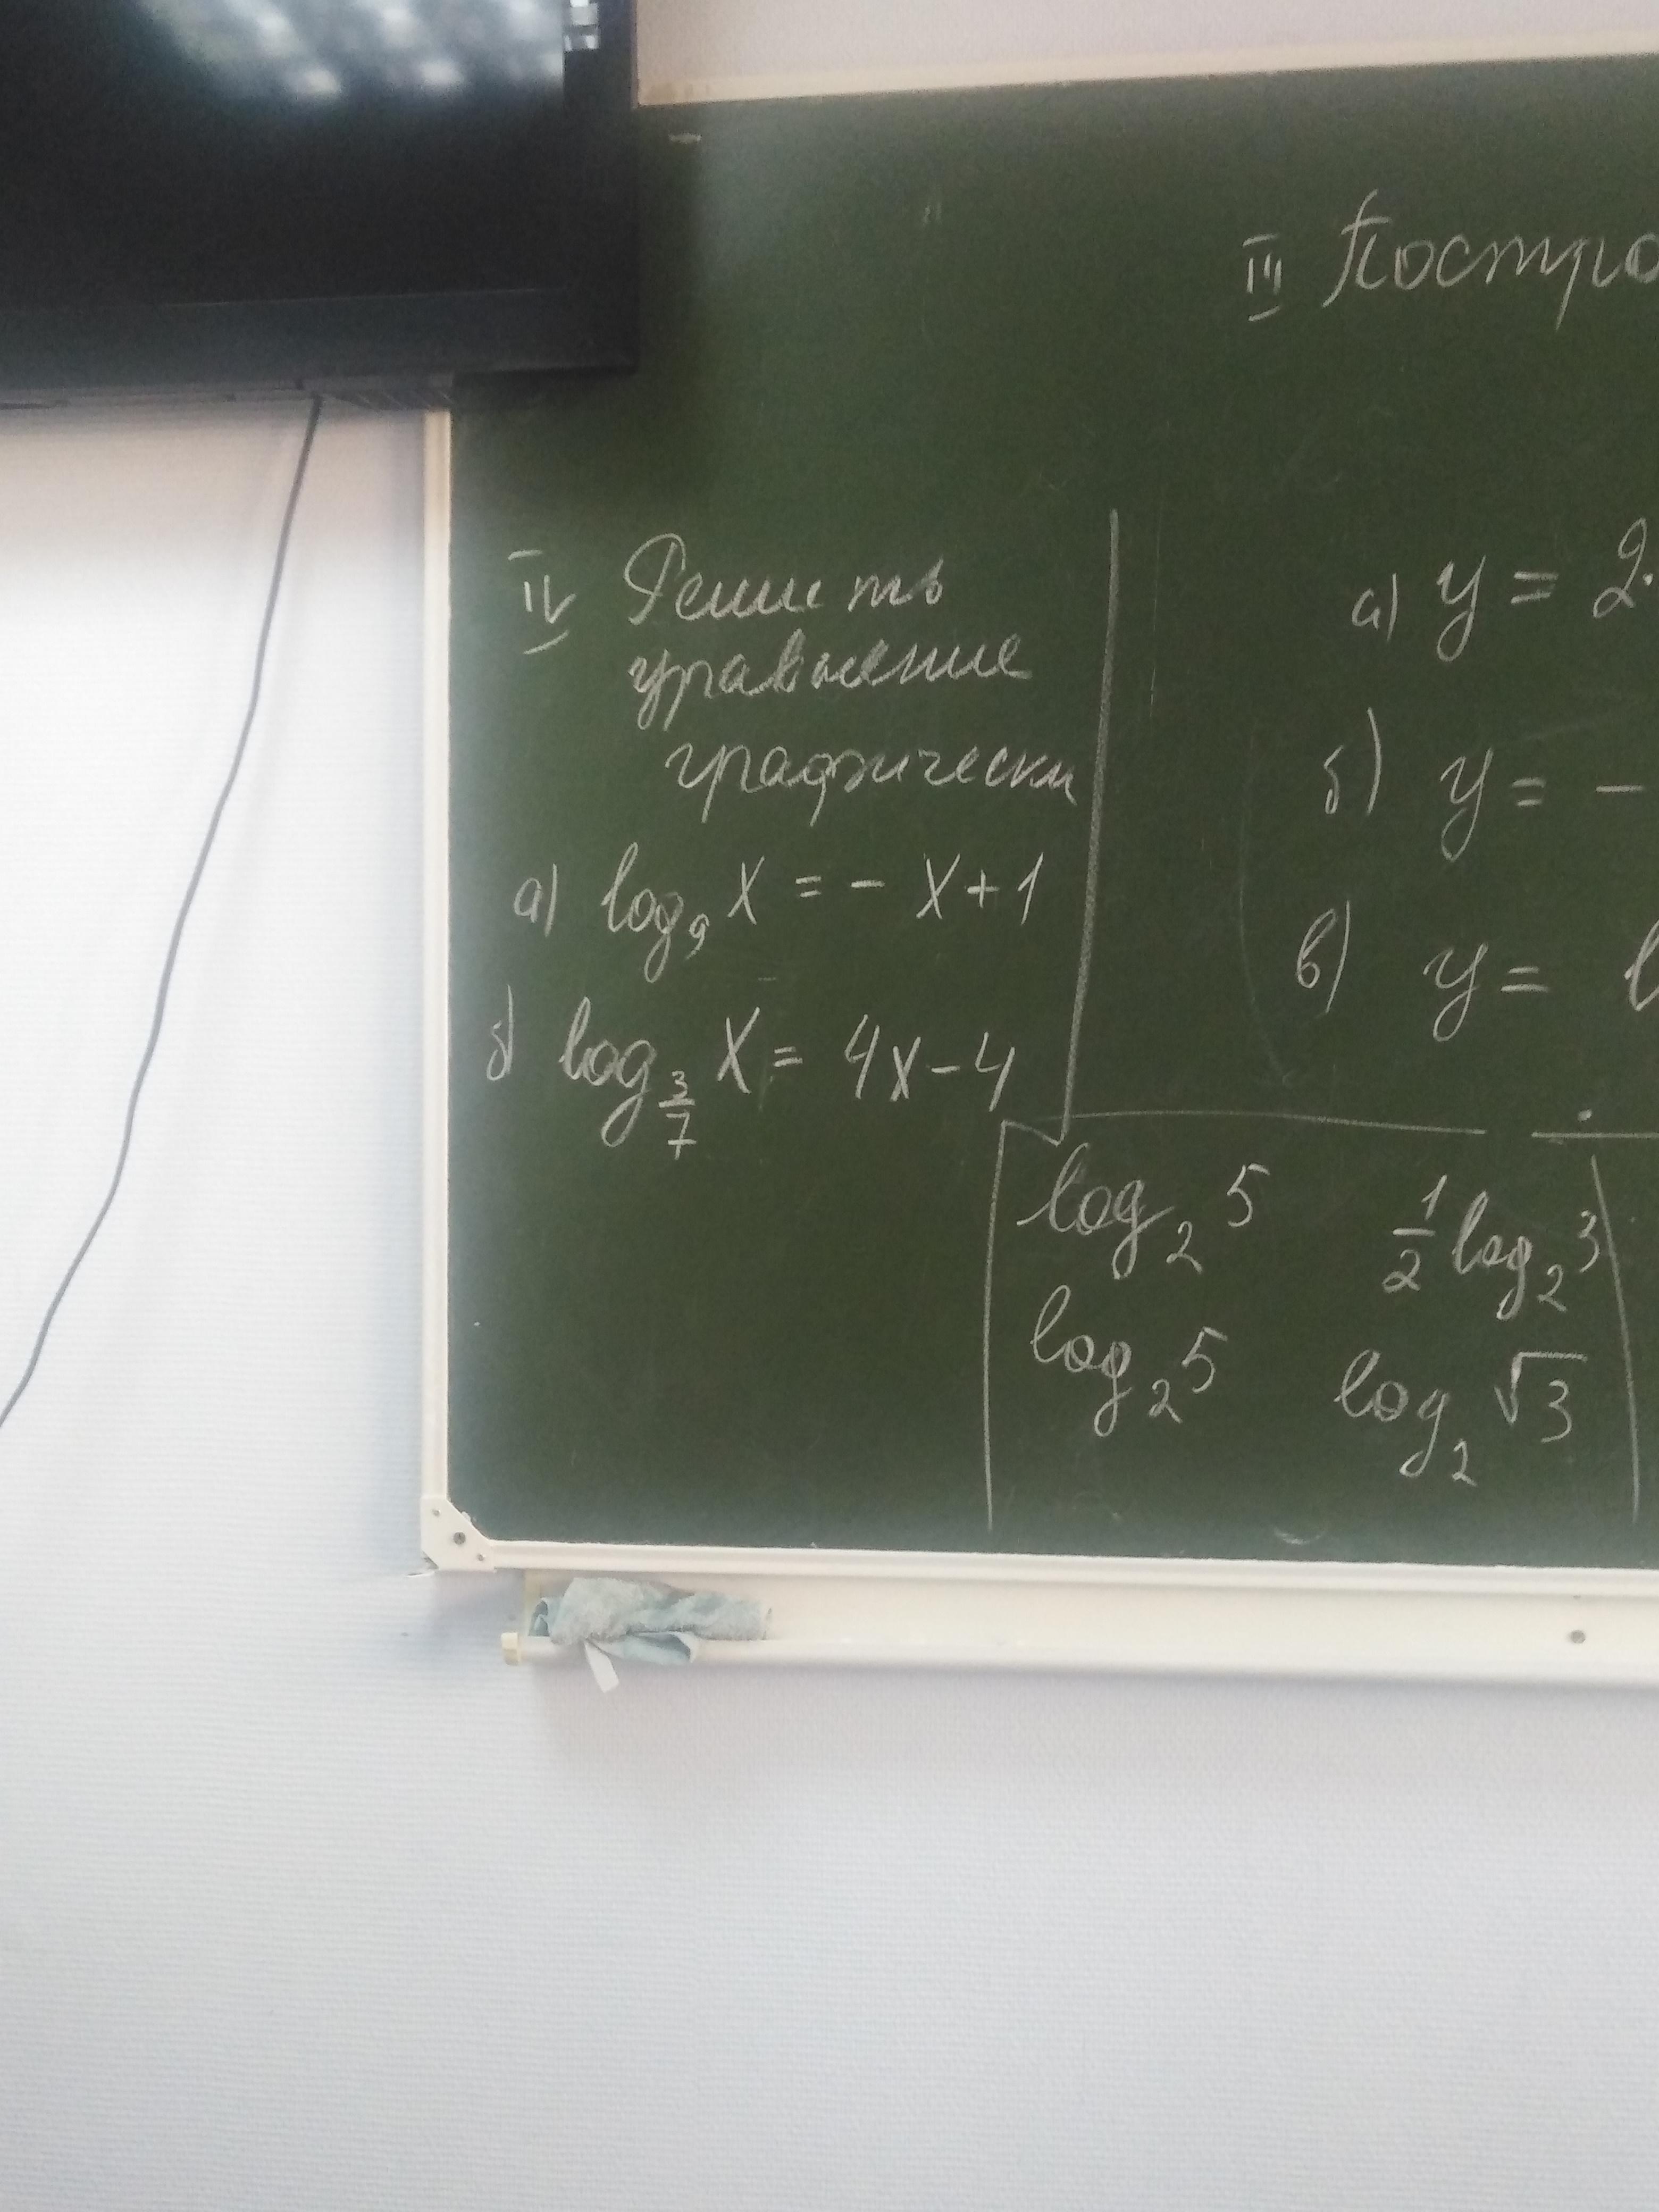 III Постро
IV Решить
уравнение
графически
а) log₉ x = - x + 1
б) log_{3/7} x = 4x - 4
а) y = 2.
б) y = -
в) y = l
log₂ 5 1/2 log₂ 3
log₂ 5 log₂ √3